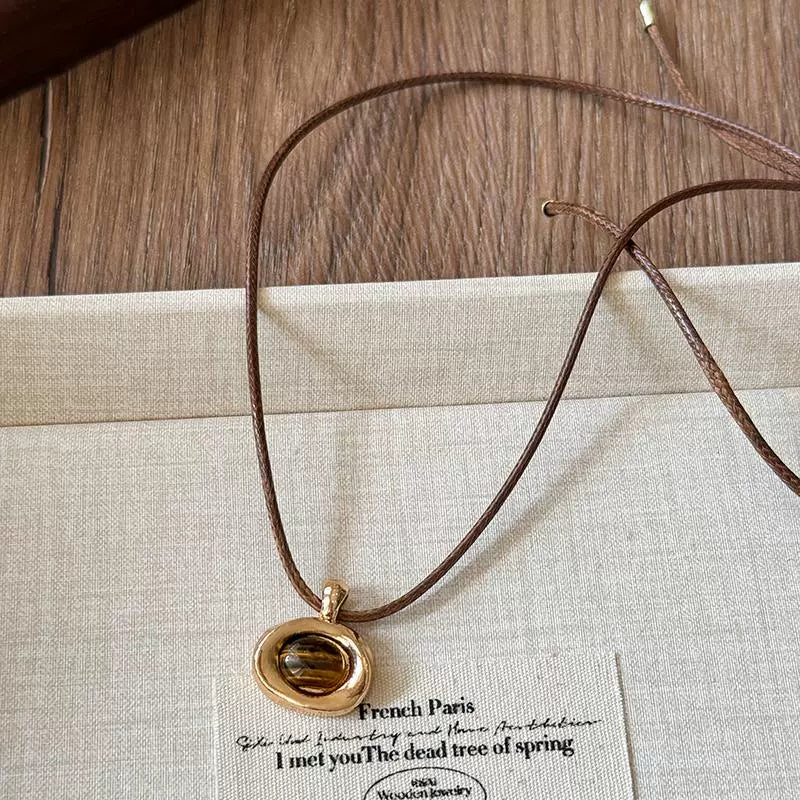 French Paris
Industry and Home Aesthetics
I met youThe dead tree of spring
Wooden Jewelry